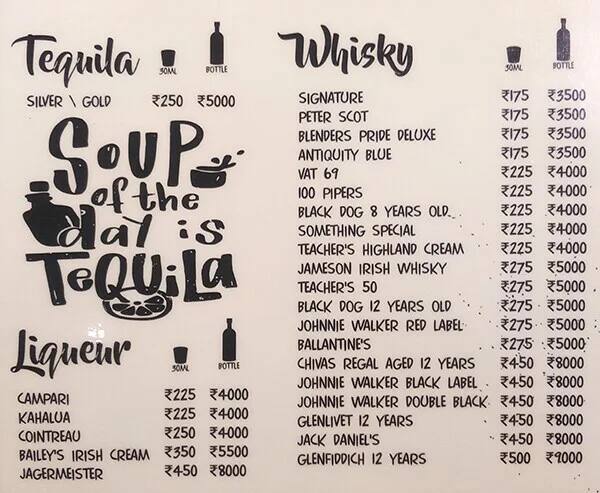 Tequila 30ML BOTTLE
SILVER \ GOLD ₹250 ₹5000
SOUP
of the
day is
TeQUiLa
Liqueur 30ML BOTTLE
CAMPARI ₹225 ₹4000
KAHALUA ₹225 ₹4000
COINTREAU ₹250 ₹4000
BAILEY'S IRISH CREAM ₹350 ₹5500
JAGERMEISTER ₹450 ₹8000
Whisky 30ML BOTTLE
SIGNATURE ₹175 ₹3500
PETER SCOT ₹175 ₹3500
BLENDERS PRIDE DELUXE ₹175 ₹3500
ANTIQUITY BLUE ₹175 ₹3500
VAT 69 ₹225 ₹4000
100 PIPERS ₹225 ₹4000
BLACK DOG 8 YEARS OLD ₹225 ₹4000
SOMETHING SPECIAL ₹225 ₹4000
TEACHER'S HIGHLAND CREAM ₹225 ₹4000
JAMESON IRISH WHISKY ₹275 ₹5000
TEACHER'S 50 ₹275 ₹5000
BLACK DOG 12 YEARS OLD ₹275 ₹5000
JOHNNIE WALKER RED LABEL ₹275 ₹5000
BALLANTINE'S ₹275 ₹5000
CHIVAS REGAL AGED 12 YEARS ₹450 ₹8000
JOHNNIE WALKER BLACK LABEL ₹450 ₹8000
JOHNNIE WALKER DOUBLE BLACK ₹450 ₹8000
GLENLIVET 12 YEARS ₹450 ₹8000
JACK DANIEL'S ₹450 ₹8000
GLENFIDDICH 12 YEARS ₹500 ₹9000